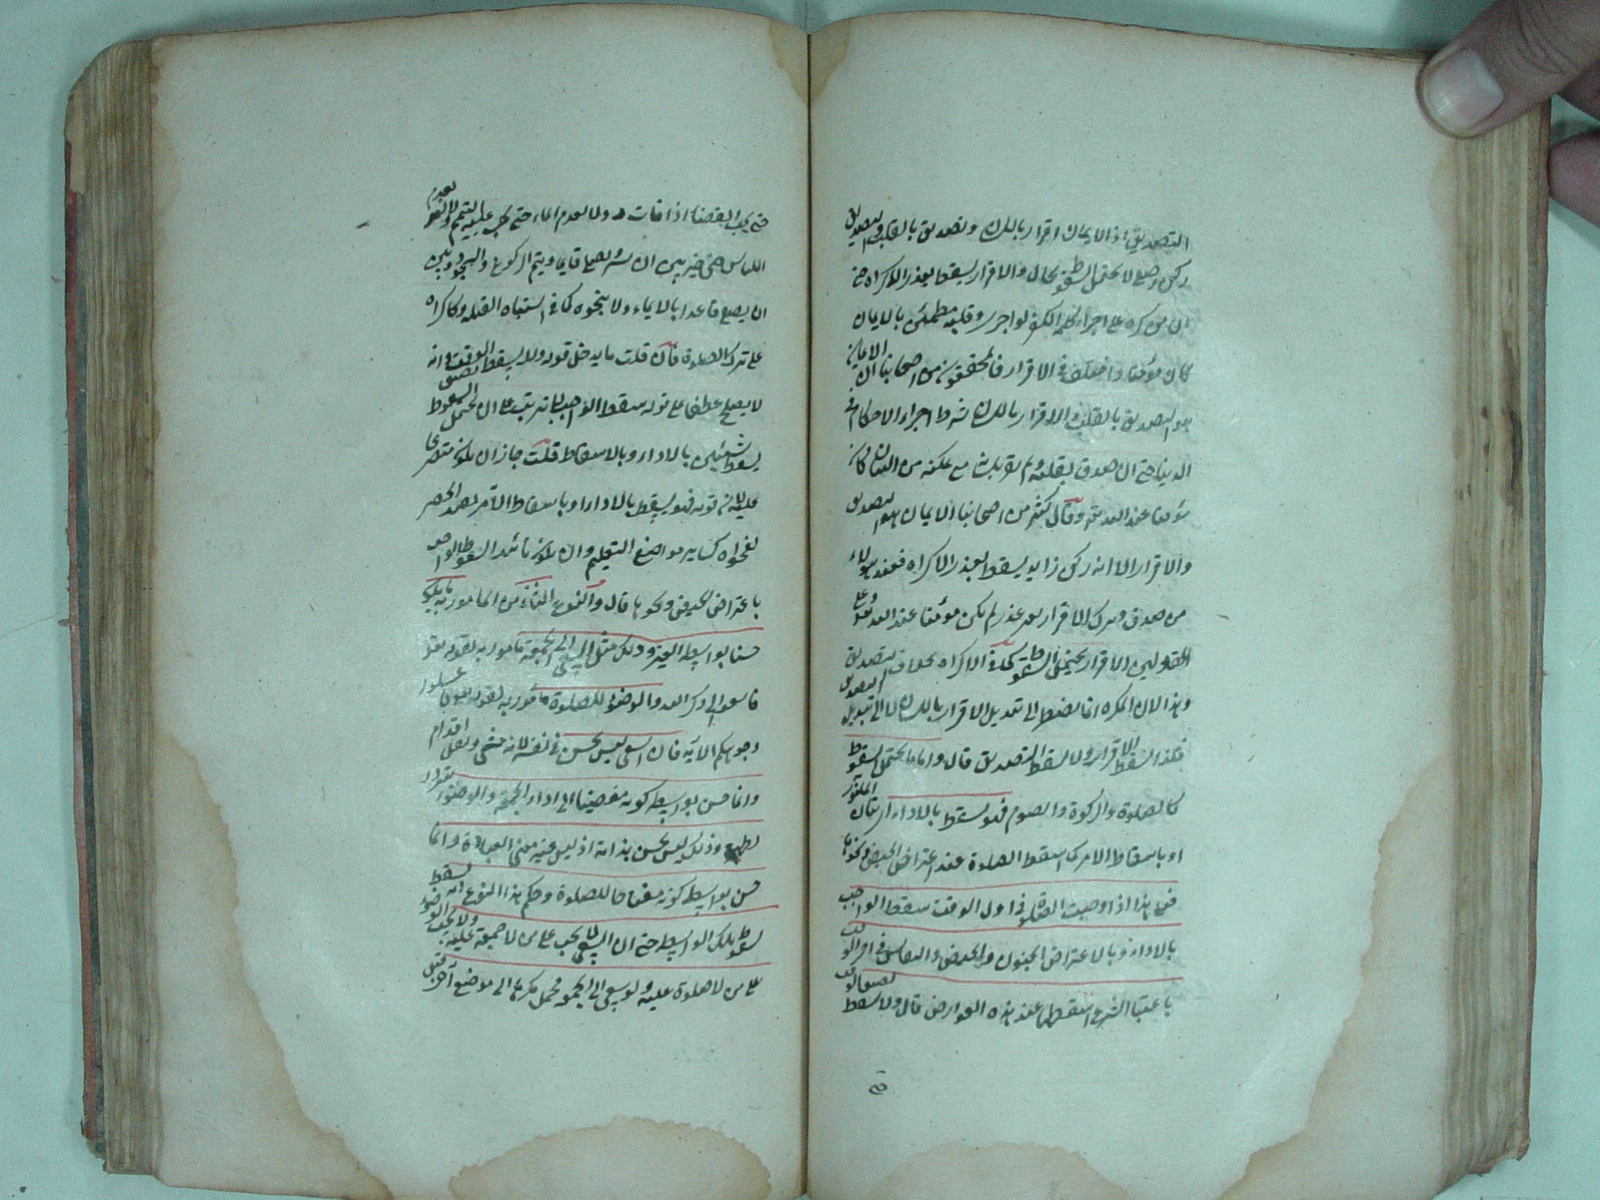 التصديق اذ الايمان اقرار باللسان وتصديق بالقلب والتصديق
ركن اصلي لا يحتمل السقوط بحال والاقرار يسقط بعذر الاكراه حتى
ان من اكره على اجراء كلمة الكفر لو اجرى وقلبه مطمئن بالايمان
كان مؤمنا واختلف في الاقرار فالمحققون من اصحابنا ان الايمان
هو التصديق بالقلب والاقرار باللسان شرط اجراء الاحكام في
الدنيا حتى ان صدق بقلبه ولم يقر بلسانه مع تمكنه من البيان كان
مؤمنا عند الله تعالى وقال كثير من اصحابنا الايمان هو التصديق
والاقرار الا انه ركن زايد يسقط بعذر الاكراه فعند هؤلاء
من صدق وترك الاقرار بغير عذر لم يكن مؤمنا عند الله تعالى وعلى
القولين الاقرار يحتمل السقوط حالة الاكراه بخلاف التصديق
وهذا لان المكره انما يضطر الى تبديل الاقرار باللسان لا الى تبديل التصديق
فلذا يسقط الاقرار ولا يسقط التصديق قال واما ما يحتمل السقوط
كالصلوة والزكوة والصوم فهو يسقط بالاداء اي اتيان المأمور
او باسقاط الامر كما يسقط الصلوة عند اعتراض الحيض ونحوها
فعلى هذا اذا وجبت الصلوة في اول الوقت سقط الواجب
بالاداء وبالاعتراض الجنون والحيض والنفاس في آخر الوقت
باعتبار الشرع اسقطها عند هذه العوارض قال ولا يسقط بضيق الوقت
حتى
حتى يجب القضاء اذا فات ولا بعدم الماء حتى يجب عليه التيمم ولا بعدم
اللباس حتى خير بين ان يصلي قايما ويتم الركوع والسجود وبين
ان يصلي قاعدا بالايماء ولا بنحوه كما في اشتباه القبلة وكاكراه
على ترك الصلوة فان قلت ما يدخل قوله ولا يسقط بضيق الوقت انه
لا يصلح عطفا على قوله سقط الواجب لما ترتب على ان المحتمل السقوط
يسقط بشيئين بالاداء وبالاسقاط قلت جاز ان يكون متفرعا
عليه لان قوله فهو يسقط بالاداء او باسقاط الآمر لقصد الحصر
لفحواه كساير مواضع التعليم وان يكون تأييد السقوط الواجب
باعتراض الحيض ونحوها قال والنوع الثاني من المأمور به ما يكون
حسنا بواسطة الغير وذلك مثل السعي الى الجمعة مأمور به بقوله تعالى
فاسعوا الى ذكر الله والوضوء للصلوة مأمور به لقوله تعالى فاغسلوا
وجوهكم الآية فان السعي ليس بحسن في نفسه لانه مشي ونقل اقدام
وانما حسن بواسطة كونه مفضيا الى اداء الجمعة والوضوء تبرد
لطهر وذلك ليس بحسن بذاته اذ ليس عينه معنى العبادة وانما
حسن بواسطة كونه مفتاحا للصلوة وحكم هذا النوع انه يسقط
بسقوط تلك الواسطة حتى ان السعي لا يجب على من لا جمعة عليه ولا يجب الوضوء
على من لا صلوة عليه ولو سعى الى الجمعة فحمل مكرها الى موضع آخر قبل